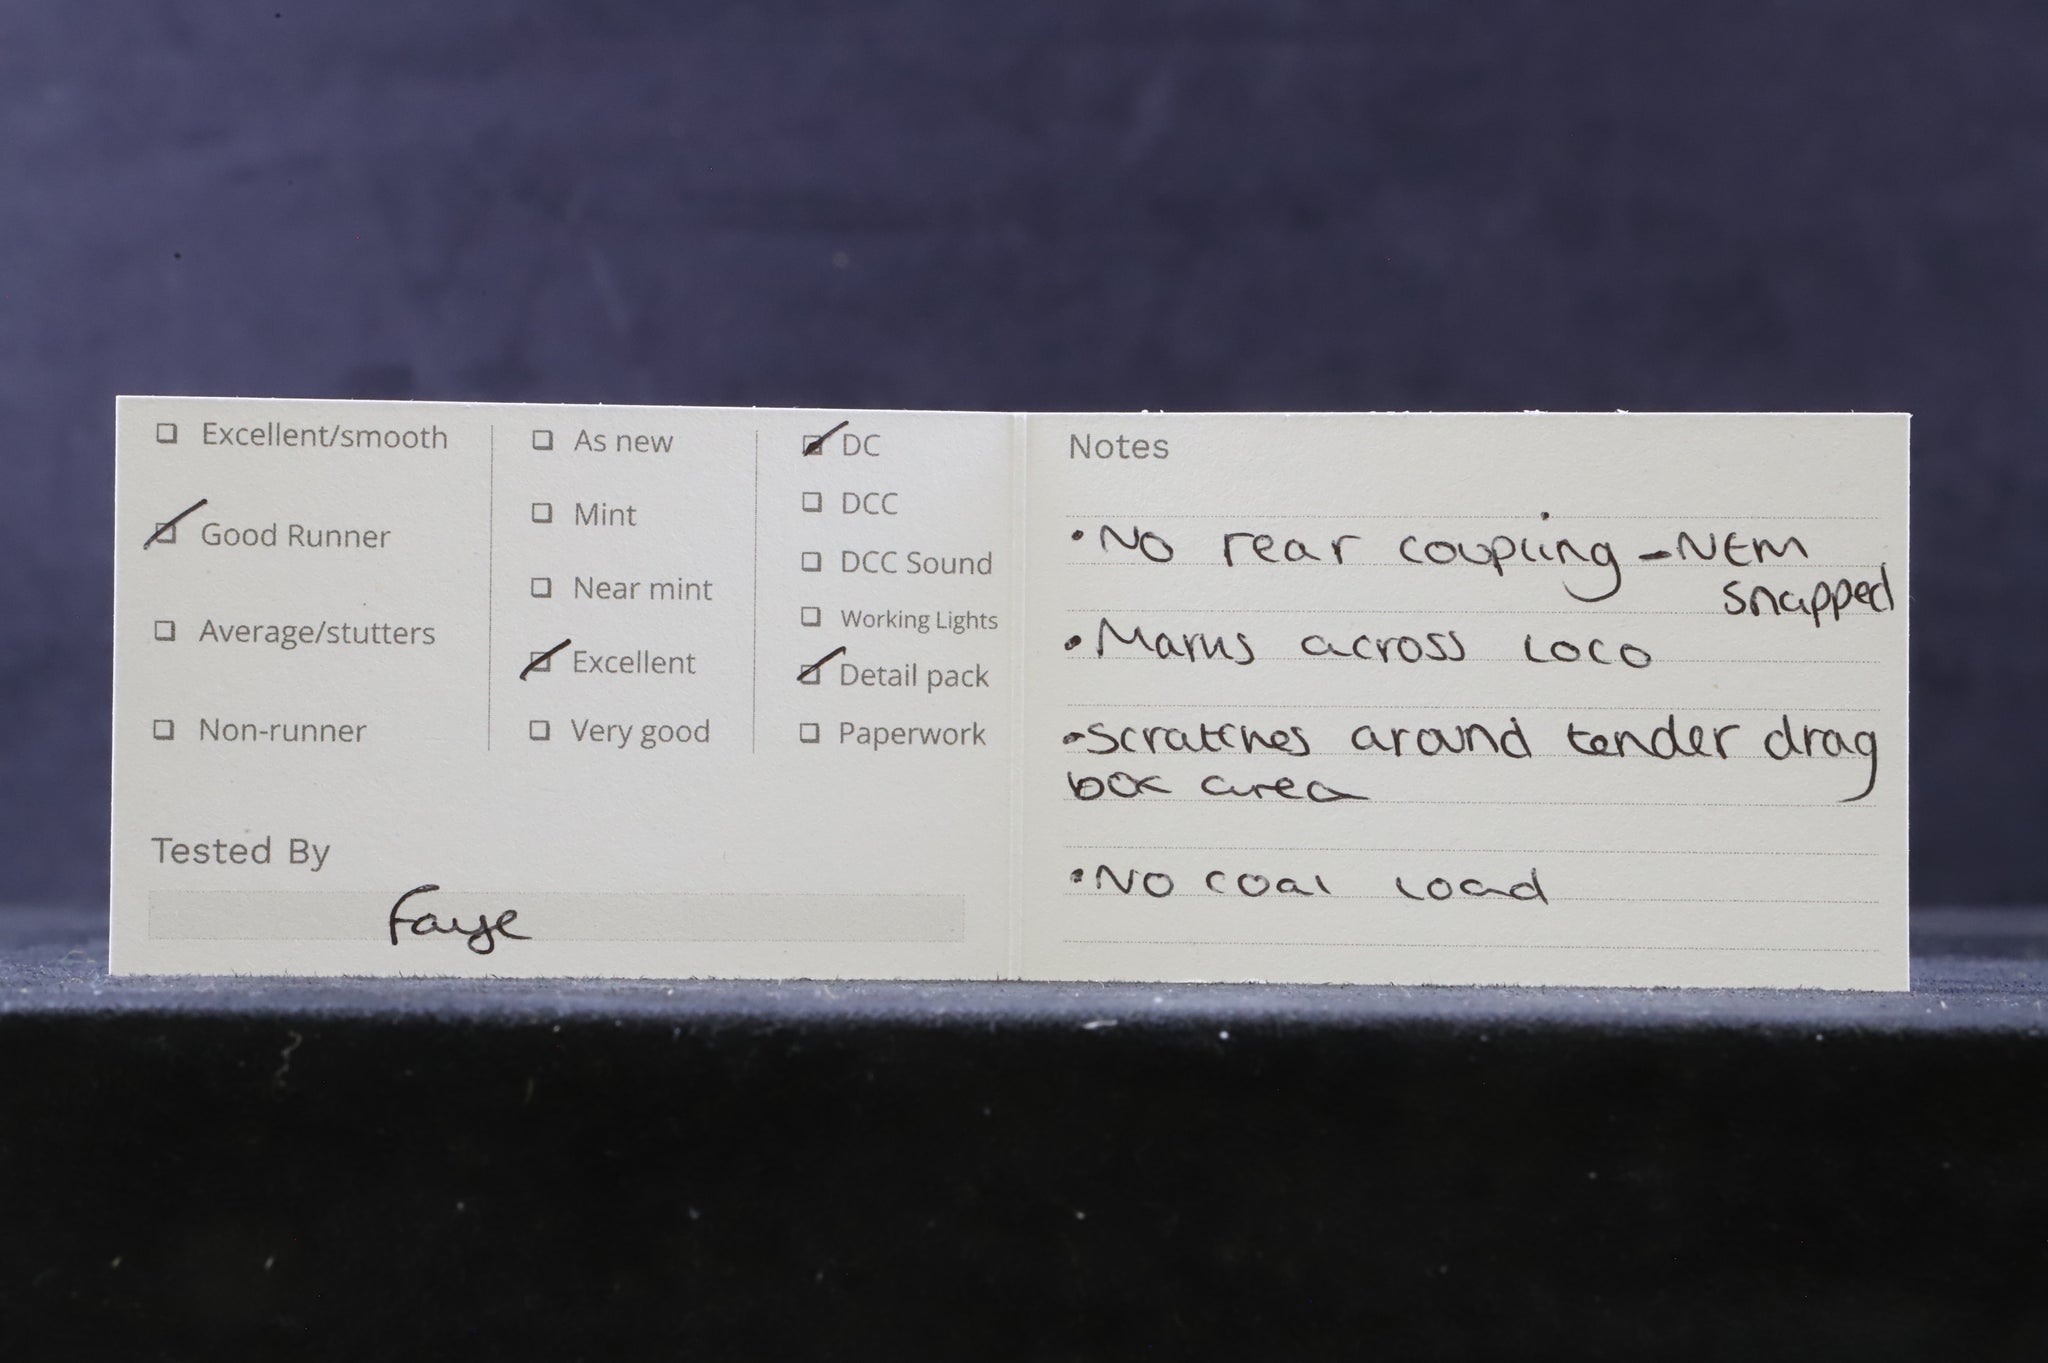 Excellent/smooth
Good Runner
Average/stutters
Non-runner
As new
Mint
Near mint
Excellent
Very good
DC
DCC
DCC Sound
Working Lights
Detail pack
Paperwork
Tested By
Faye
Notes
• No rear coupling - NEM
snapped
• Marks across loco
• Scratches around tender drag
box area
• No coal load